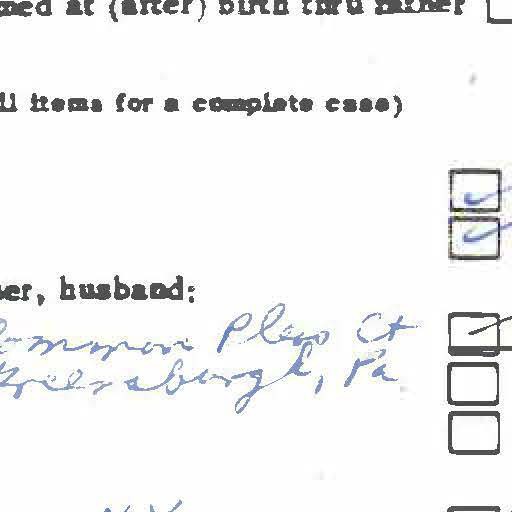 ned at (after) birth thru father
ll items for a complete case)
er, husband:
Common Pleas Ct
Greensburgh, Pa